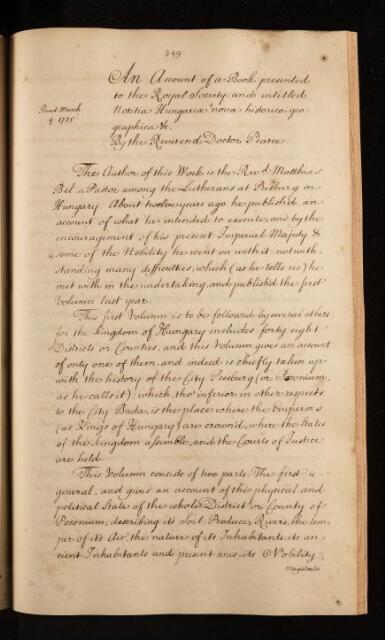 349
An Account of a Book, presented
to the Royal Society, and intitled
Read March
4 1735
Notitia Hungariæ nova historico geo-
graphica &c.
By the Reverend Doctor Pearce
The Author of this Work is the Revd. Matthias
Bel, a Pastor among the Lutherans at Presburg in
Hungary. About twelve years ago he publish'd an
account of what he intended to execute, and by the
encouragement of his present Imperial Majesty &
some of the Nobility he went on with it notwith-
standing many difficulties, which (as he tells us) he
met with in the undertaking, and publish'd the first
Volumn last year.
This first Volumn is to be followed by several others
for the Kingdom of Hungary includes forty eight
Districts or Counties, and this Volumn gives an account
of only one of them, and indeed is chiefly taken up
with the history of the City Presburg (or Posonium,
as he calls it); which, tho' inferior in other respects
to the City Buda, is the place where the Emperors
(as Kings of Hungary) are crown'd, where the States
of the Kingdom assemble, and the Courts of Justice
are held.
This Volumn consists of two parts. The first is
general, and gives an account of the physical and
political State of the whole District or County of
Posonium; describing its Soil, Produce, Rivers, the tem-
per of its Air, the nature of its Inhabitants, its an-
cient Inhabitants and present ones, its Nobility,
Magistrates